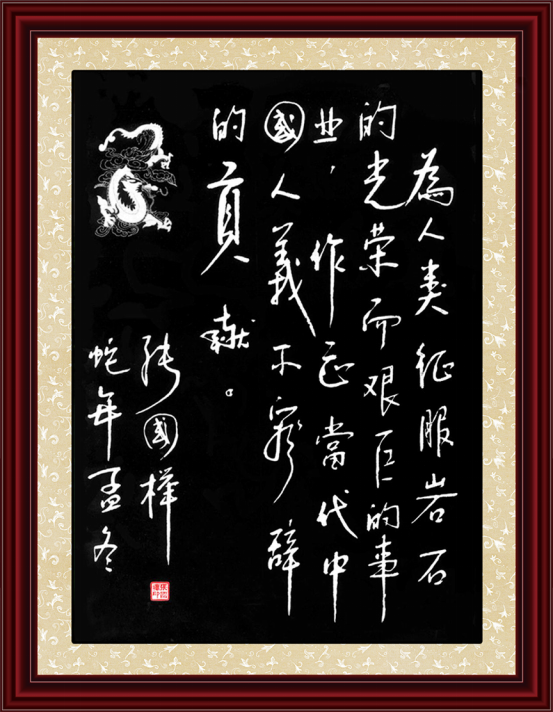 為人类征服岩石
的光荣而艰巨的事
业，作出當代中
國人義不容辭
的貢献。
张國樺
蛇年孟冬